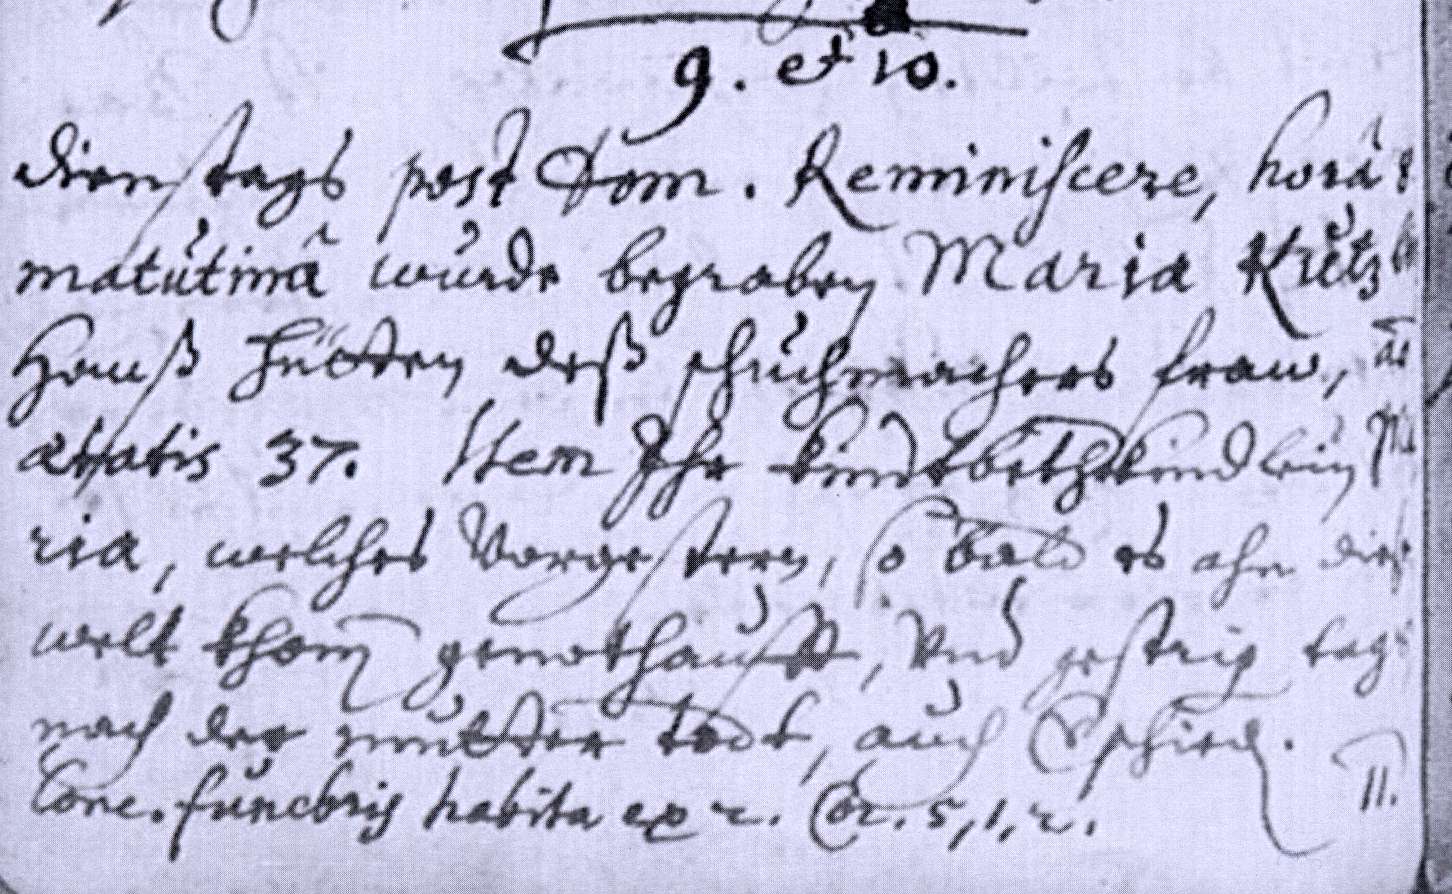 9. et 10.
dienstags post Dom. Reminiscere, horâ 8
matutinâ wurde begraben Maria
Hanß Hütten deß schuhmachers fraw,
ætatis 37. Item Ihr kindtbethkindlein Ma
ria, welches Vorgestern, so bald es ahn dies
welt khom̄ genothaufft, Vnd gestrig tags
nach der mutter todt, auch Verschied.
Conc. funebris habita ex 2. Cor. 5, 1, 2.
11.